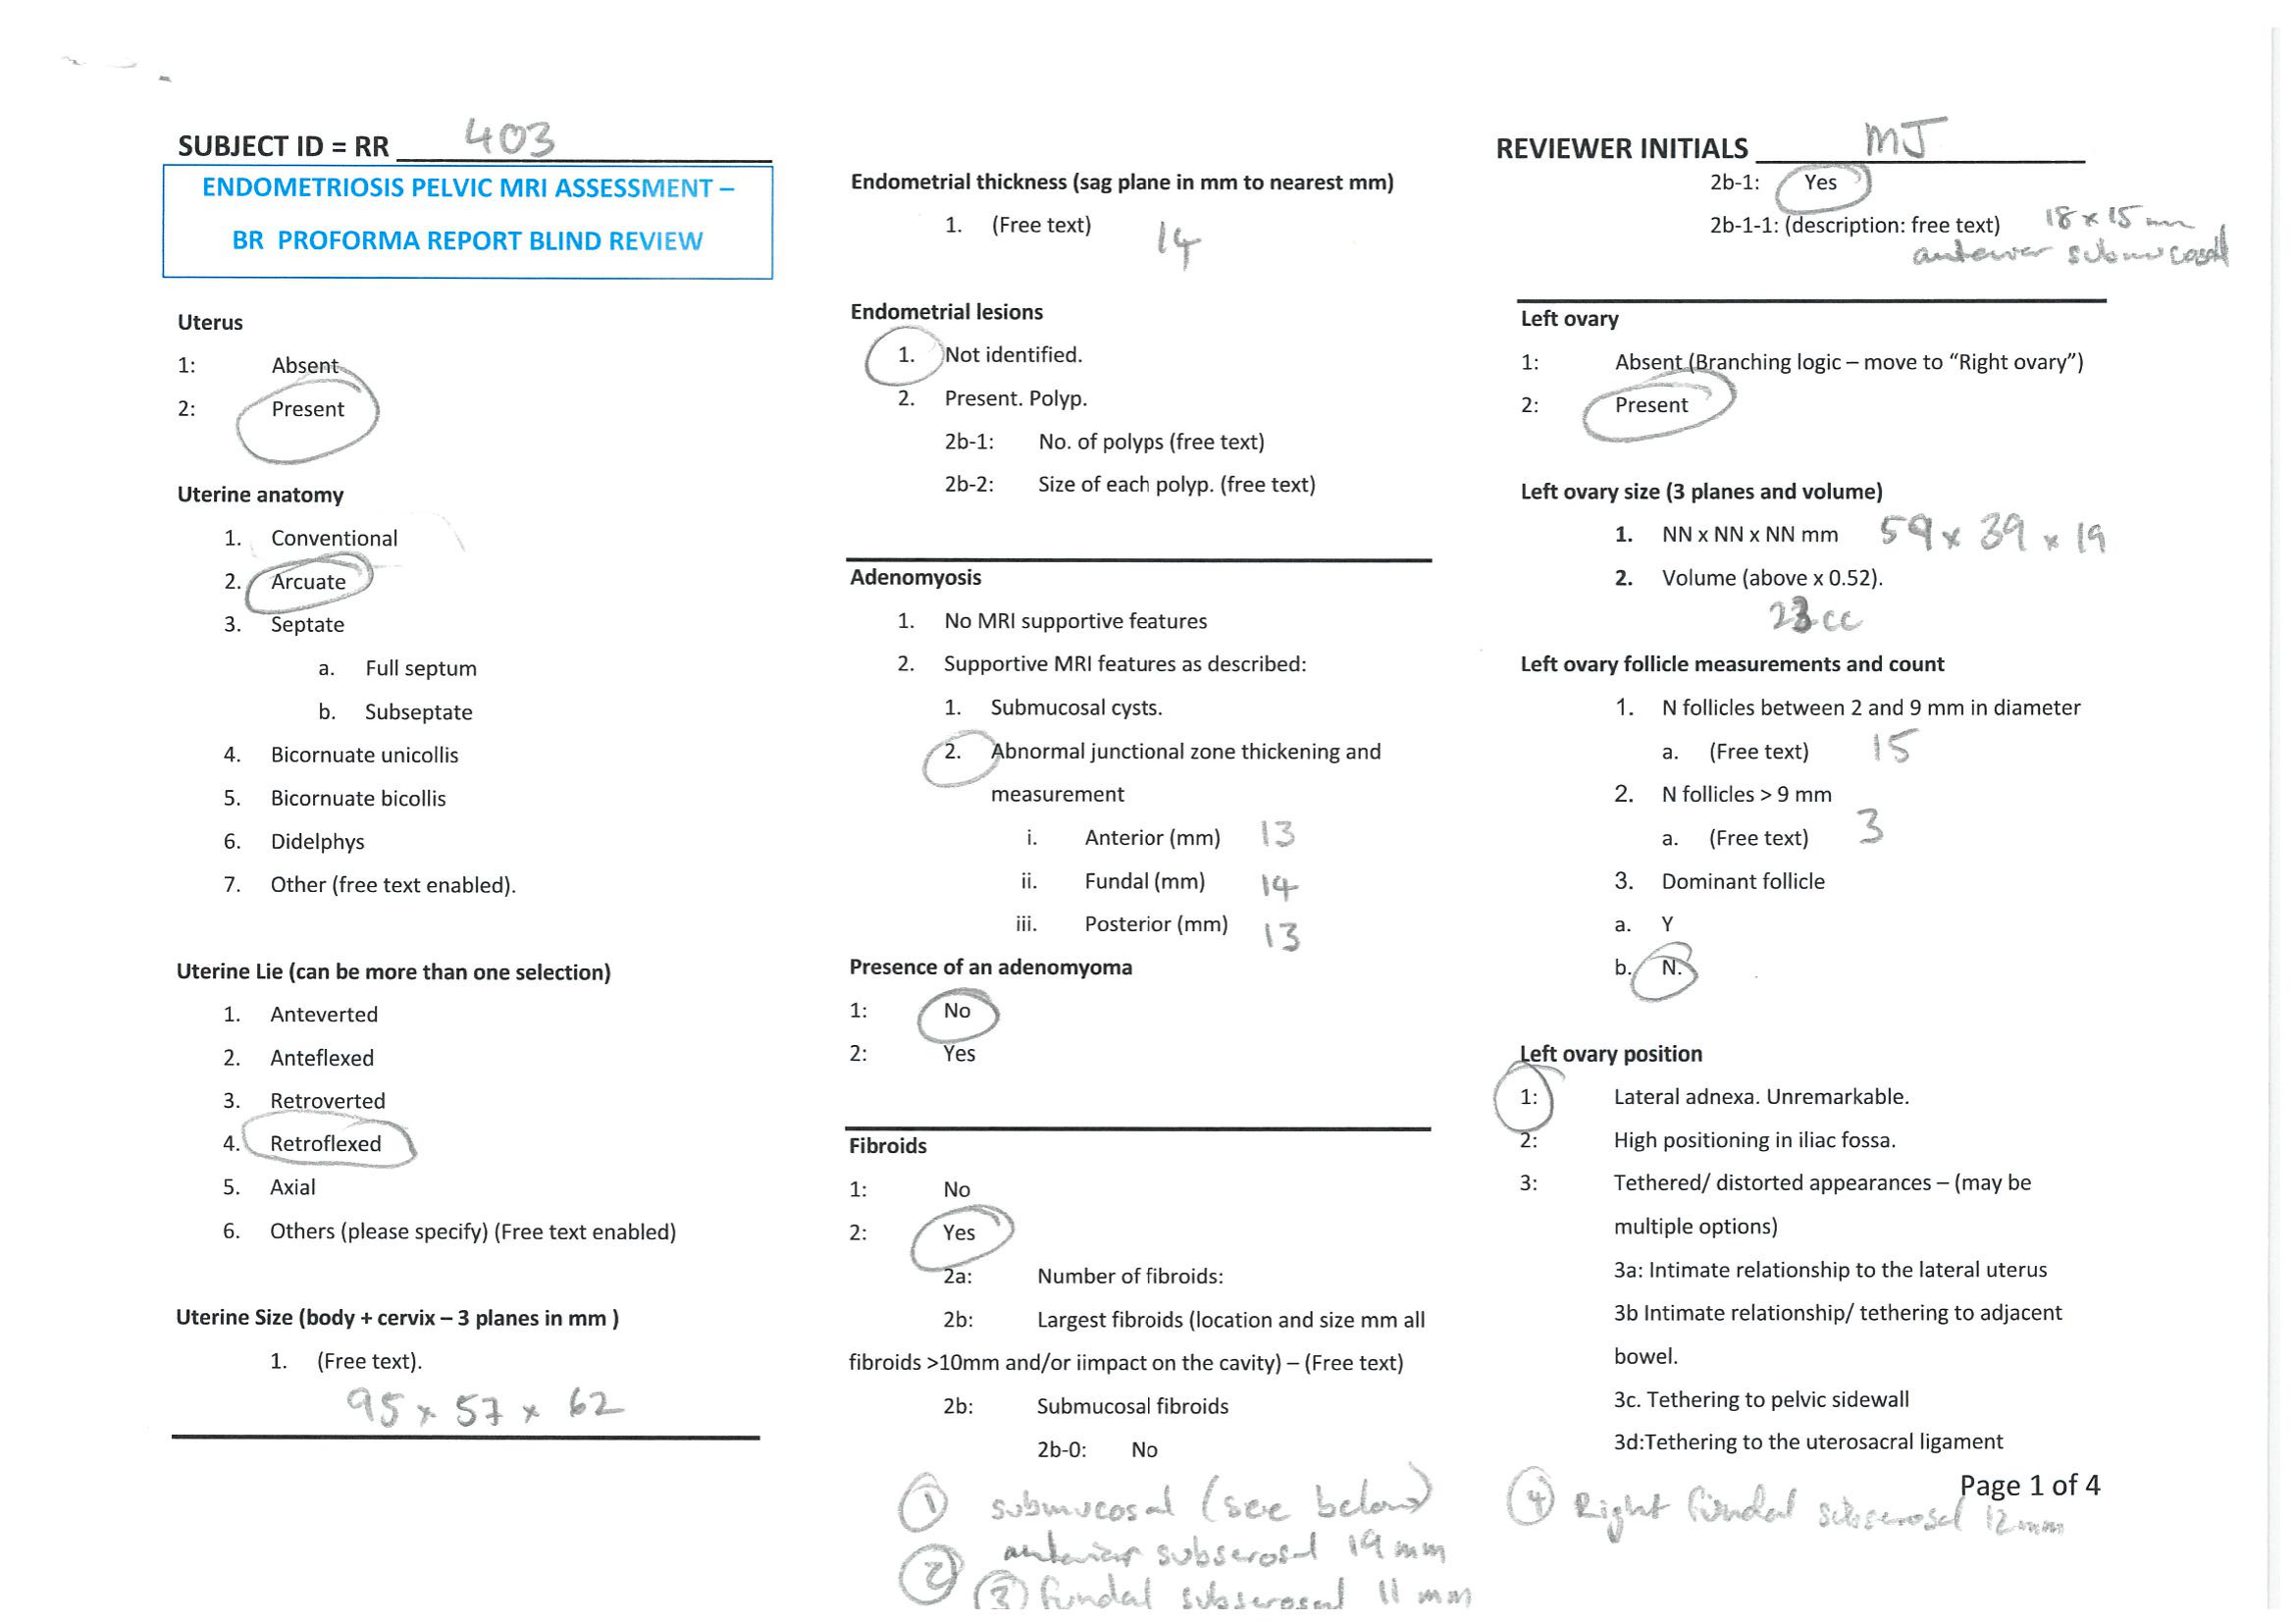 SUBJECT ID = RR 403
ENDOMETRIOSIS PELVIC MRI ASSESSMENT –
BR PROFORMA REPORT BLIND REVIEW
Uterus
1: Absent
2: Present
Uterine anatomy
1. Conventional
2. Arcuate
3. Septate
a. Full septum
b. Subseptate
4. Bicornuate unicollis
5. Bicornuate bicollis
6. Didelphys
7. Other (free text enabled).
Uterine Lie (can be more than one selection)
1. Anteverted
2. Anteflexed
3. Retroverted
4. Retroflexed
5. Axial
6. Others (please specify) (Free text enabled)
Uterine Size (body + cervix – 3 planes in mm )
1. (Free text).
95 x 57 x 62
Endometrial thickness (sag plane in mm to nearest mm)
1. (Free text) 14
Endometrial lesions
1. Not identified.
2. Present. Polyp.
2b-1: No. of polyps (free text)
2b-2: Size of each polyp. (free text)
Adenomyosis
1. No MRI supportive features
2. Supportive MRI features as described:
1. Submucosal cysts.
2. Abnormal junctional zone thickening and
measurement
i. Anterior (mm) 13
ii. Fundal (mm) 14
iii. Posterior (mm) 13
Presence of an adenomyoma
1: No
2: Yes
Fibroids
1: No
2: Yes
2a: Number of fibroids:
2b: Largest fibroids (location and size mm all
fibroids >10mm and/or iimpact on the cavity) – (Free text)
2b: Submucosal fibroids
2b-0: No
1 submucosal (see below)
2 anterior subserosal 19 mm
3 fundal subserosal 11 mm
REVIEWER INITIALS MJ
2b-1: Yes
2b-1-1: (description: free text) 18 x 15 mm
anterior submucosal
Left ovary
1: Absent (Branching logic – move to “Right ovary”)
2: Present
Left ovary size (3 planes and volume)
1. NN x NN x NN mm 59 x 39 x 19
2. Volume (above x 0.52).
23 cc
Left ovary follicle measurements and count
1. N follicles between 2 and 9 mm in diameter
a. (Free text) 15
2. N follicles > 9 mm
a. (Free text) 3
3. Dominant follicle
a. Y
b. N.
Left ovary position
1: Lateral adnexa. Unremarkable.
2: High positioning in iliac fossa.
3: Tethered/ distorted appearances – (may be
multiple options)
3a: Intimate relationship to the lateral uterus
3b Intimate relationship/ tethering to adjacent
bowel.
3c. Tethering to pelvic sidewall
3d:Tethering to the uterosacral ligament
Page 1 of 4
4 Right fundal subserosal 12mm